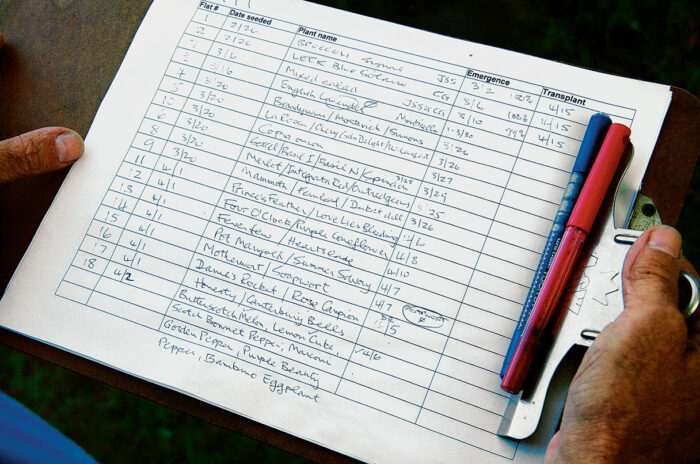 Flat # Date seeded Plant name Emergence Transplant
1 2/26 Broccoli JSS 3/2 100% 4/15
2 2/26 Leek Blue Solaise CG 3/6 100% 4/15
3/6 Mixed salad JSS & CG 3/10 99% 4/15
3/16 English Lavender Monticello
7 3/20 Brandywine / / 3/26
3/20 La Roma / / 3/26
10 3/20 Copra onion 3/27
8 3/20 Sorrel / Basil / Basil N / 3/28 3/29
9 3/20 Merlot / Integrata Red /
11 3/20 Mammoth / Fernleaf / dill 3/26
12 4/1 Princes Feather / Love Lies Bleeding
13 4/1 Four O'Clock / Purple Coneflower 4/8
14 4/1 Feverfew / Heartsease 4/10
15 4/1 Pot Marigold / Summer Savory 4/7
16 4/1 Motherwort / Soapwort 4/7
17 4/1 Dame's Rocket / Rose Campion
18 4/2 Honesty / Canterbury Bells 4/6
Butterscotch Melon, Lemon Cuke,
Scotch Bonnet Pepper, Marconi
Golden Pepper, Purple Beauty
Pepper, Bambino Eggplant